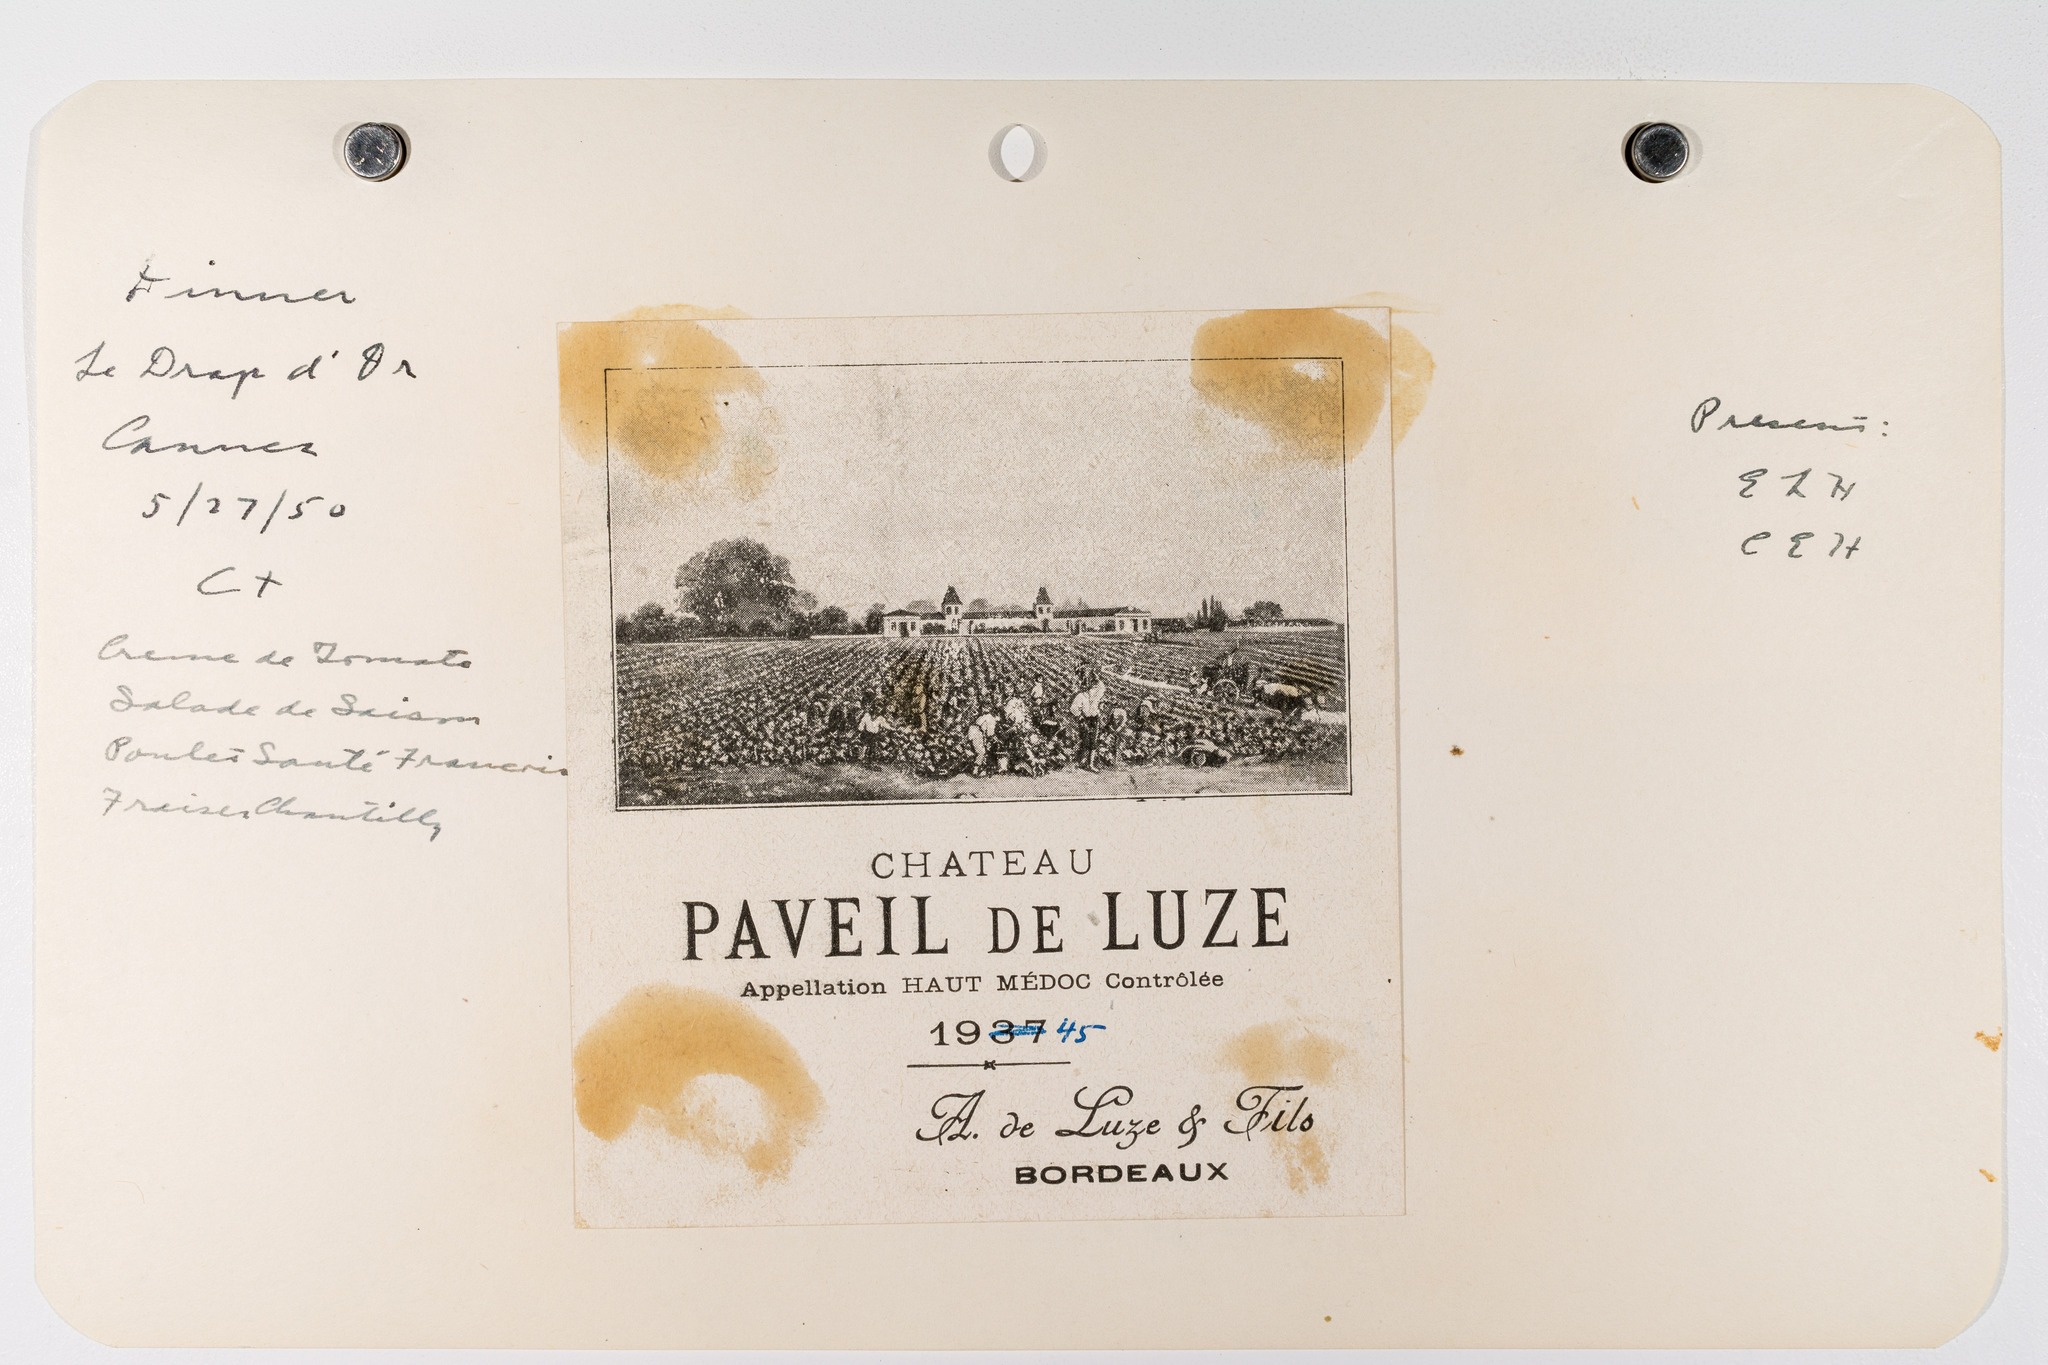 Dinner
Le Drap d'Or
Cannes
5/27/50
C+
Creme de Tomato
Salade de Saison
Poulet Sauté Francois
Fraises Chantilly
CHATEAU
PAVEIL DE LUZE
Appellation HAUT MÉDOC Contrôlée
1937 45
A. de Luze & Fils
BORDEAUX
Present:
E L H
C E H